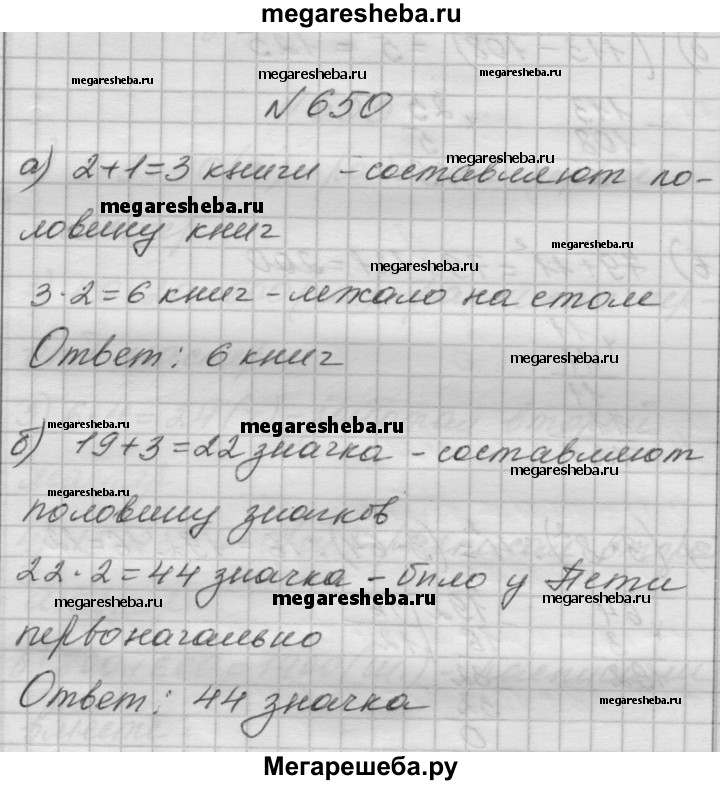 megaresheba.ru
megaresheba.ru megaresheba.ru megaresheba.ru
№650
megaresheba.ru
а) 2+1=3 книги - составляют по-
megaresheba.ru
ловину книг
megaresheba.ru
megaresheba.ru
3·2=6 книг - лежало на столе
Ответ: 6 книг
megaresheba.ru
megaresheba.ru megaresheba.ru
б) 19+3=22 значка - составляют
megaresheba.ru
megaresheba.ru
половину значков
22·2=44 значка - было у Пети
megaresheba.ru megaresheba.ru megaresheba.ru
первоначально
Ответ: 44 значка
megaresheba.ru
Мегарешеба.ру